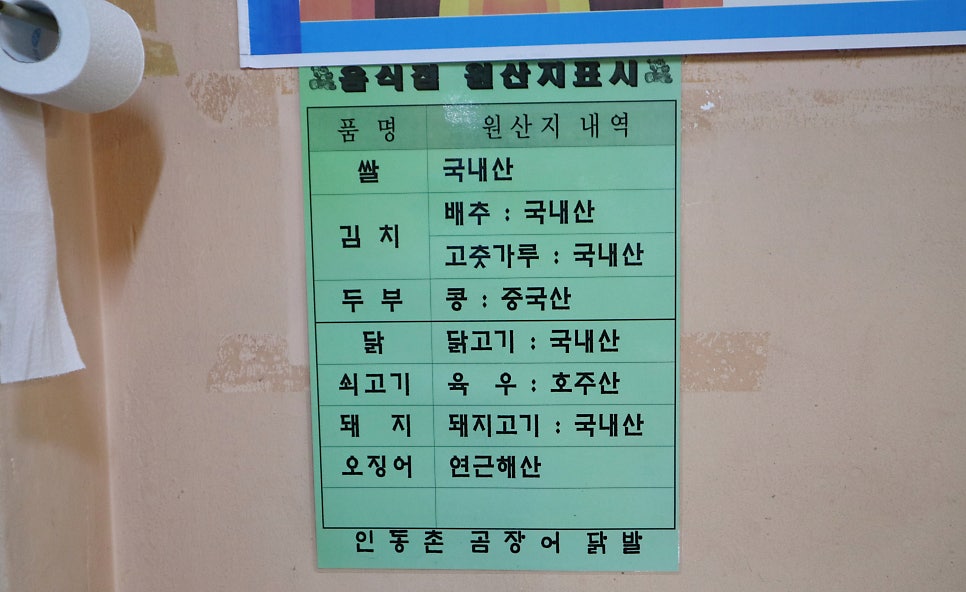 음식점 원산지표시
품 명 원산지 내역
쌀 국내산
김 치 배추 : 국내산
고춧가루 : 국내산
두 부 콩 : 중국산
닭 닭고기 : 국내산
쇠고기 육 우 : 호주산
돼 지 돼지고기 : 국내산
오징어 연근해산
인 동 촌 곰 장 어 닭 발